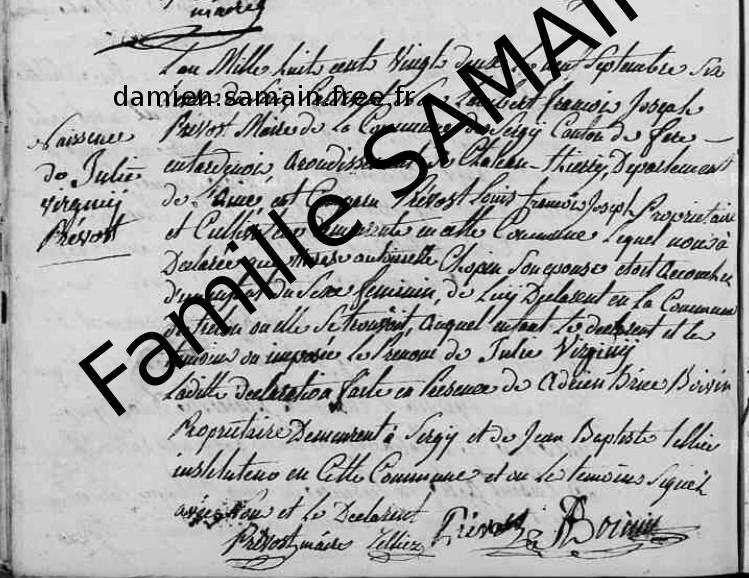 maire
L'an Mille huit cent Vingt deux le neuf Septembre Six
damien.samain.free.fr
Famille SAMAIN
Lambert francois Joseph
Naissence
de Julie
virginij
Prévost
Prévost Maire de La Commune de Sergy Canton de fere
entardenois arondissement de Chateau-thierry Departement
de L'aine est Comparu Prévost Louis francois Joseph Proprietaire
et Cultivateur demeurente en cette Commune Lequel nous à
Declaree que Marie antoinette Chopin Son epouse etoit accouchee
d'un enfant du Sexe feminin, de Luij Declarent en La Commune
ou elle Se trouvoit, auquel enfant Le declarent et les
temoins on imposée le Prenom de Julie Virginij
Laditte declaration faite en Presence de Adrien Brice Boivin
Propriétaire Demeurent à Sergy et de Jean Baptiste tellier
instituteur en Cette Commune et on Les temoins Signéz
avec Nous et le Declarent
Prévost maire tellier Prévost Boivin